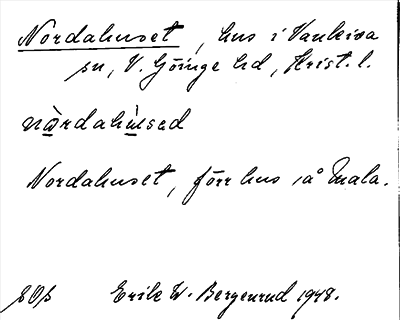 Nordahuset, hus i Vankiva
sn, V. Göinge hd, Krist. l.
nòrdahùsəd
Nordahuset, förr hus på Mala.
Erik W. Bergenrud 1948.